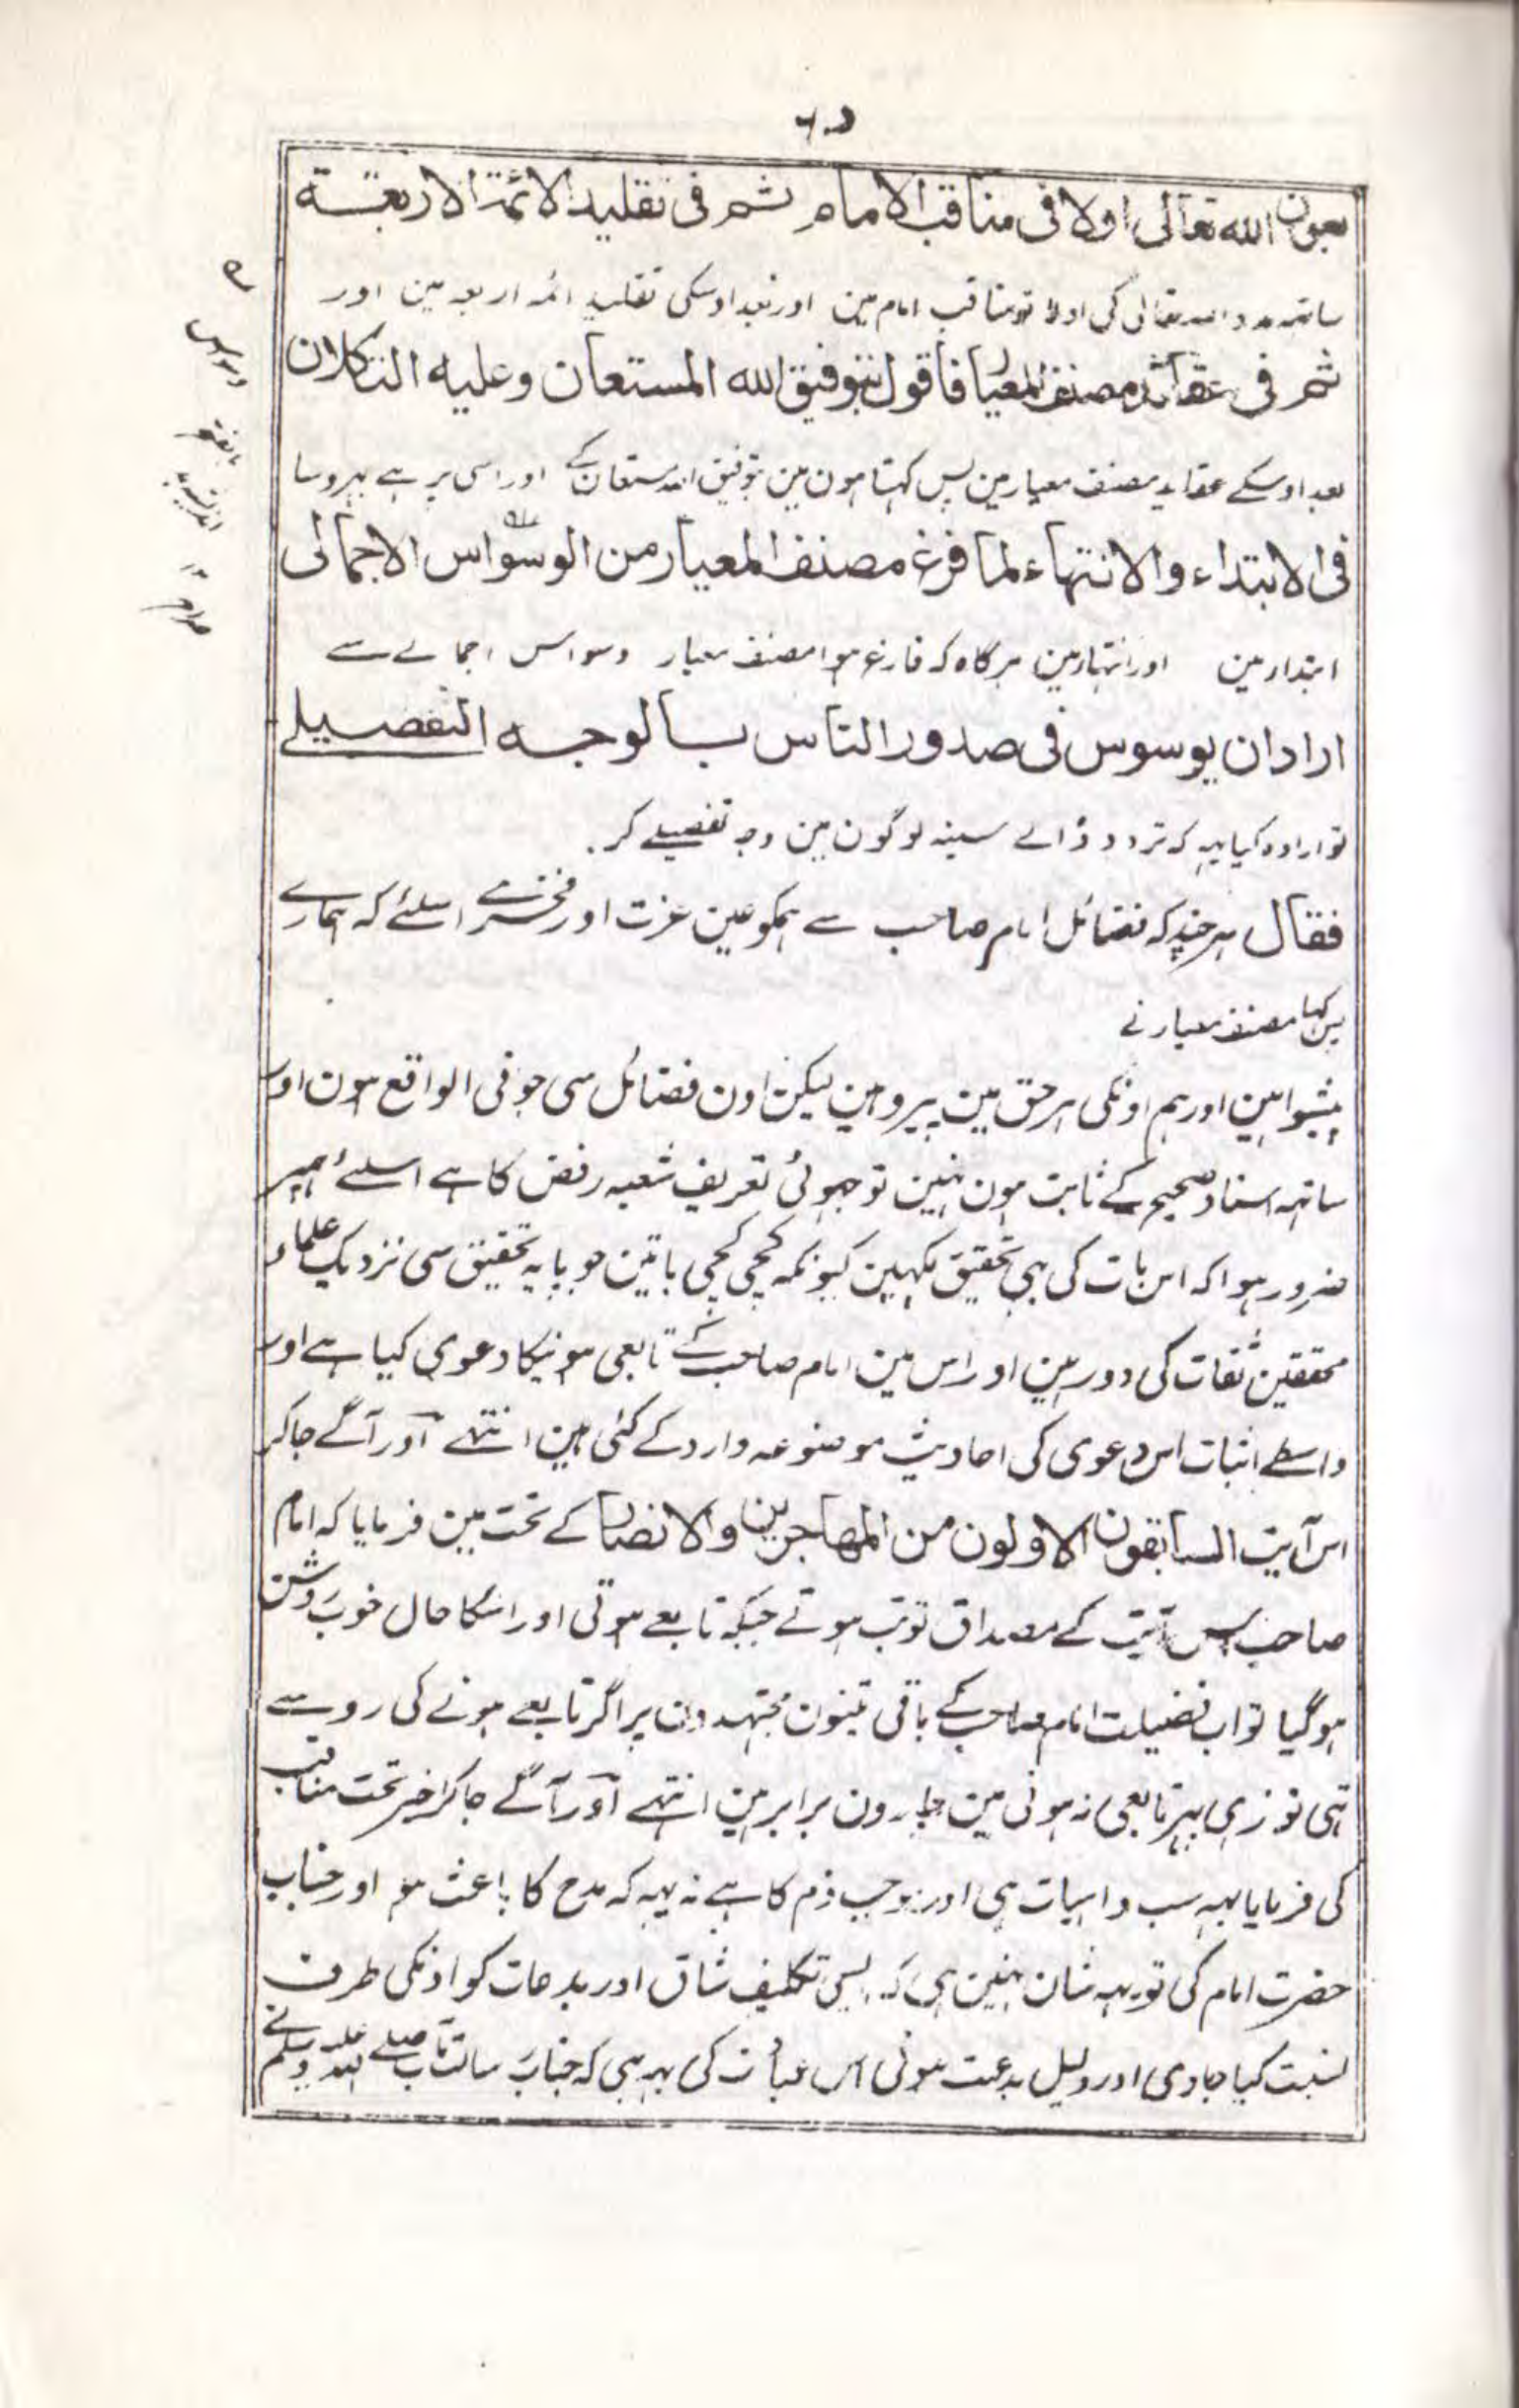 بعون الله تعالى اولا فى مناقب الامام ثم فى تقليد الائمة الاربعة
ساتھ مدد اللہ تعالی کی اولا تو مناقب امام مین اور بعد اوسکی تقلید ائمہ اربعہ مین اور
ثم فى عقائد مصنف المعيار فاقول بتوفيق الله المستعان وعليه التكلان
بعد اوسکے عقاید مصنف معیار مین پس کہتا ہون مین بتوفیق اللہ مستعان کے اور اسی پر ہے بہروسا
فى الابتداء والانتهاء لما فرغ مصنف المعيار من الوسواس الاجمالى
ابتدا مین اور انتہا مین ہر گاہ کہ فارغ ہوا مصنف معیار وسواس اجمالے سے
اراد ان يوسوس فى صدور الناس بالوجه التفصيلے
تو ارادہ کیا یہہ کہ تردد ڈالے سینہ لوگون مین وجہ تفصیلے کر
فقال ہر چند کہ فضائل امام صاحب سے ہمکو عین عزت اور فخر ہے اسلئے کہ ہمارے
پس کہا مصنف معیار نے
پیشوا ہین اور ہم اونکی ہر حق مین پیرو ہین لیکن اون فضائل سی جو فی الواقع ہون اور
ساتھہ اسناد صحیح کے ثابت ہون نہین تو جہوٹی تعریف شعبہ رفض کا ہے اسلئے ہمپر
ضرور ہوا کہ اس بات کی بہی تحقیق لکہین کیونکہ کچی کچی باتین جو پایہ تحقیق سی نزدیک علماء
محققین ثقات کی دور ہین اور اس مین امام صاحب کے تابعی ہونیکا دعوی کیا ہے اور
واسطے اثبات اس دعوی کی احادیث موضوعہ وارد کے گئی ہین انتہے اور آگے جا کر
اس آیت السابقون الاولون من المهاجرين والانصار کے تحت مین فرمایا کہ امام
صاحب اس آیت کے مصداق تو تب ہوتے جبکہ تابعے ہوتی اور اسکا حال خوب روشن
ہو گیا تو اب فضیلت امام صاحب کے باقی تینون مجتہدون پر اگر تابعے ہونے کی رو سے
تہی تو نرہی بہر تابعی نہ ہونی مین چارون برابر ہین انتہے اور آگے جا کر اخیر تحت مناقب
کی فرمایا یہہ سب واہیات ہی اور موجب ذم کا ہے نہ یہہ کہ مدح کا باعث ہو اور جناب
حضرت امام کی تو یہہ شان نہین ہی کہ ایسی تکلیف شاق اور بدعات کو اونکی طرف
نسبت کیا جاوی اور دلیل بدعت ہونی اس عبادت کی یہہ ہی کہ جناب رسالتماب صلے اللہ علیہ وسلم نے